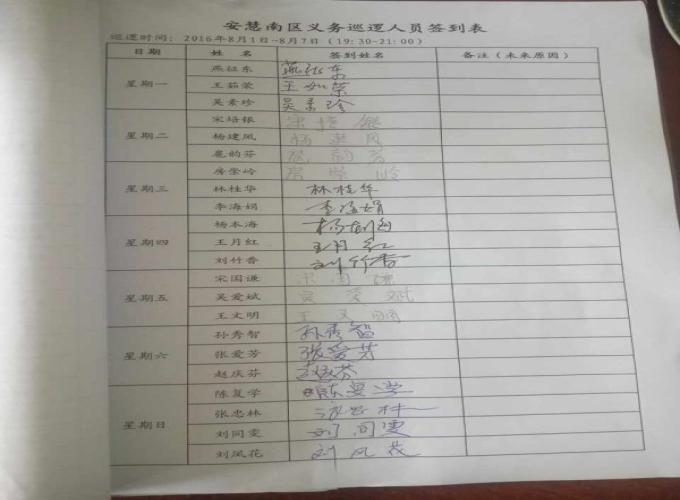 安慧南区义务巡逻人员签到表
巡逻时间：2016年8月1日~8月7日（19:30-21:00）
日期 姓名 签到姓名 备注（未来原因）
星期一 燕征东 燕征东
王茹荣 王如荣
吴素珍 吴素珍
星期二 宋培银 宋培银
杨建凤 杨建凤
扈韵芬 扈韵芳
星期三 房崇岭 房崇岭
林桂华 林桂华
李海娟 李海娟
星期四 杨本海
王月红 王月红
刘竹香 刘竹香
星期五 宋国谦 宋国谦
吴爱斌 吴爱斌
王文明 王文明
星期六 孙秀智 孙秀智
张爱芳 张爱芳
赵庆芬 赵庆芬
星期日 陈复学 陈复学
张忠林
刘同雯 刘同雯
刘凤花 刘凤花